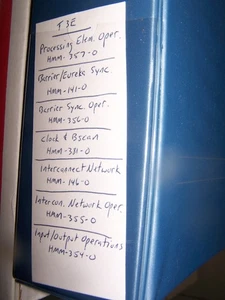 T3E
Processing Elem. Oper.
HMM-357-0
Barrier/Eureka Sync.
HMM-141-0
Barrier Sync. Oper.
HMM-356-0
Clock & Bscan
HMM-381-0
Interconnect Network
HMM-146-0
Intercon. Network Oper.
HMM-355-0
Input/Output Operations
HMM-354-0